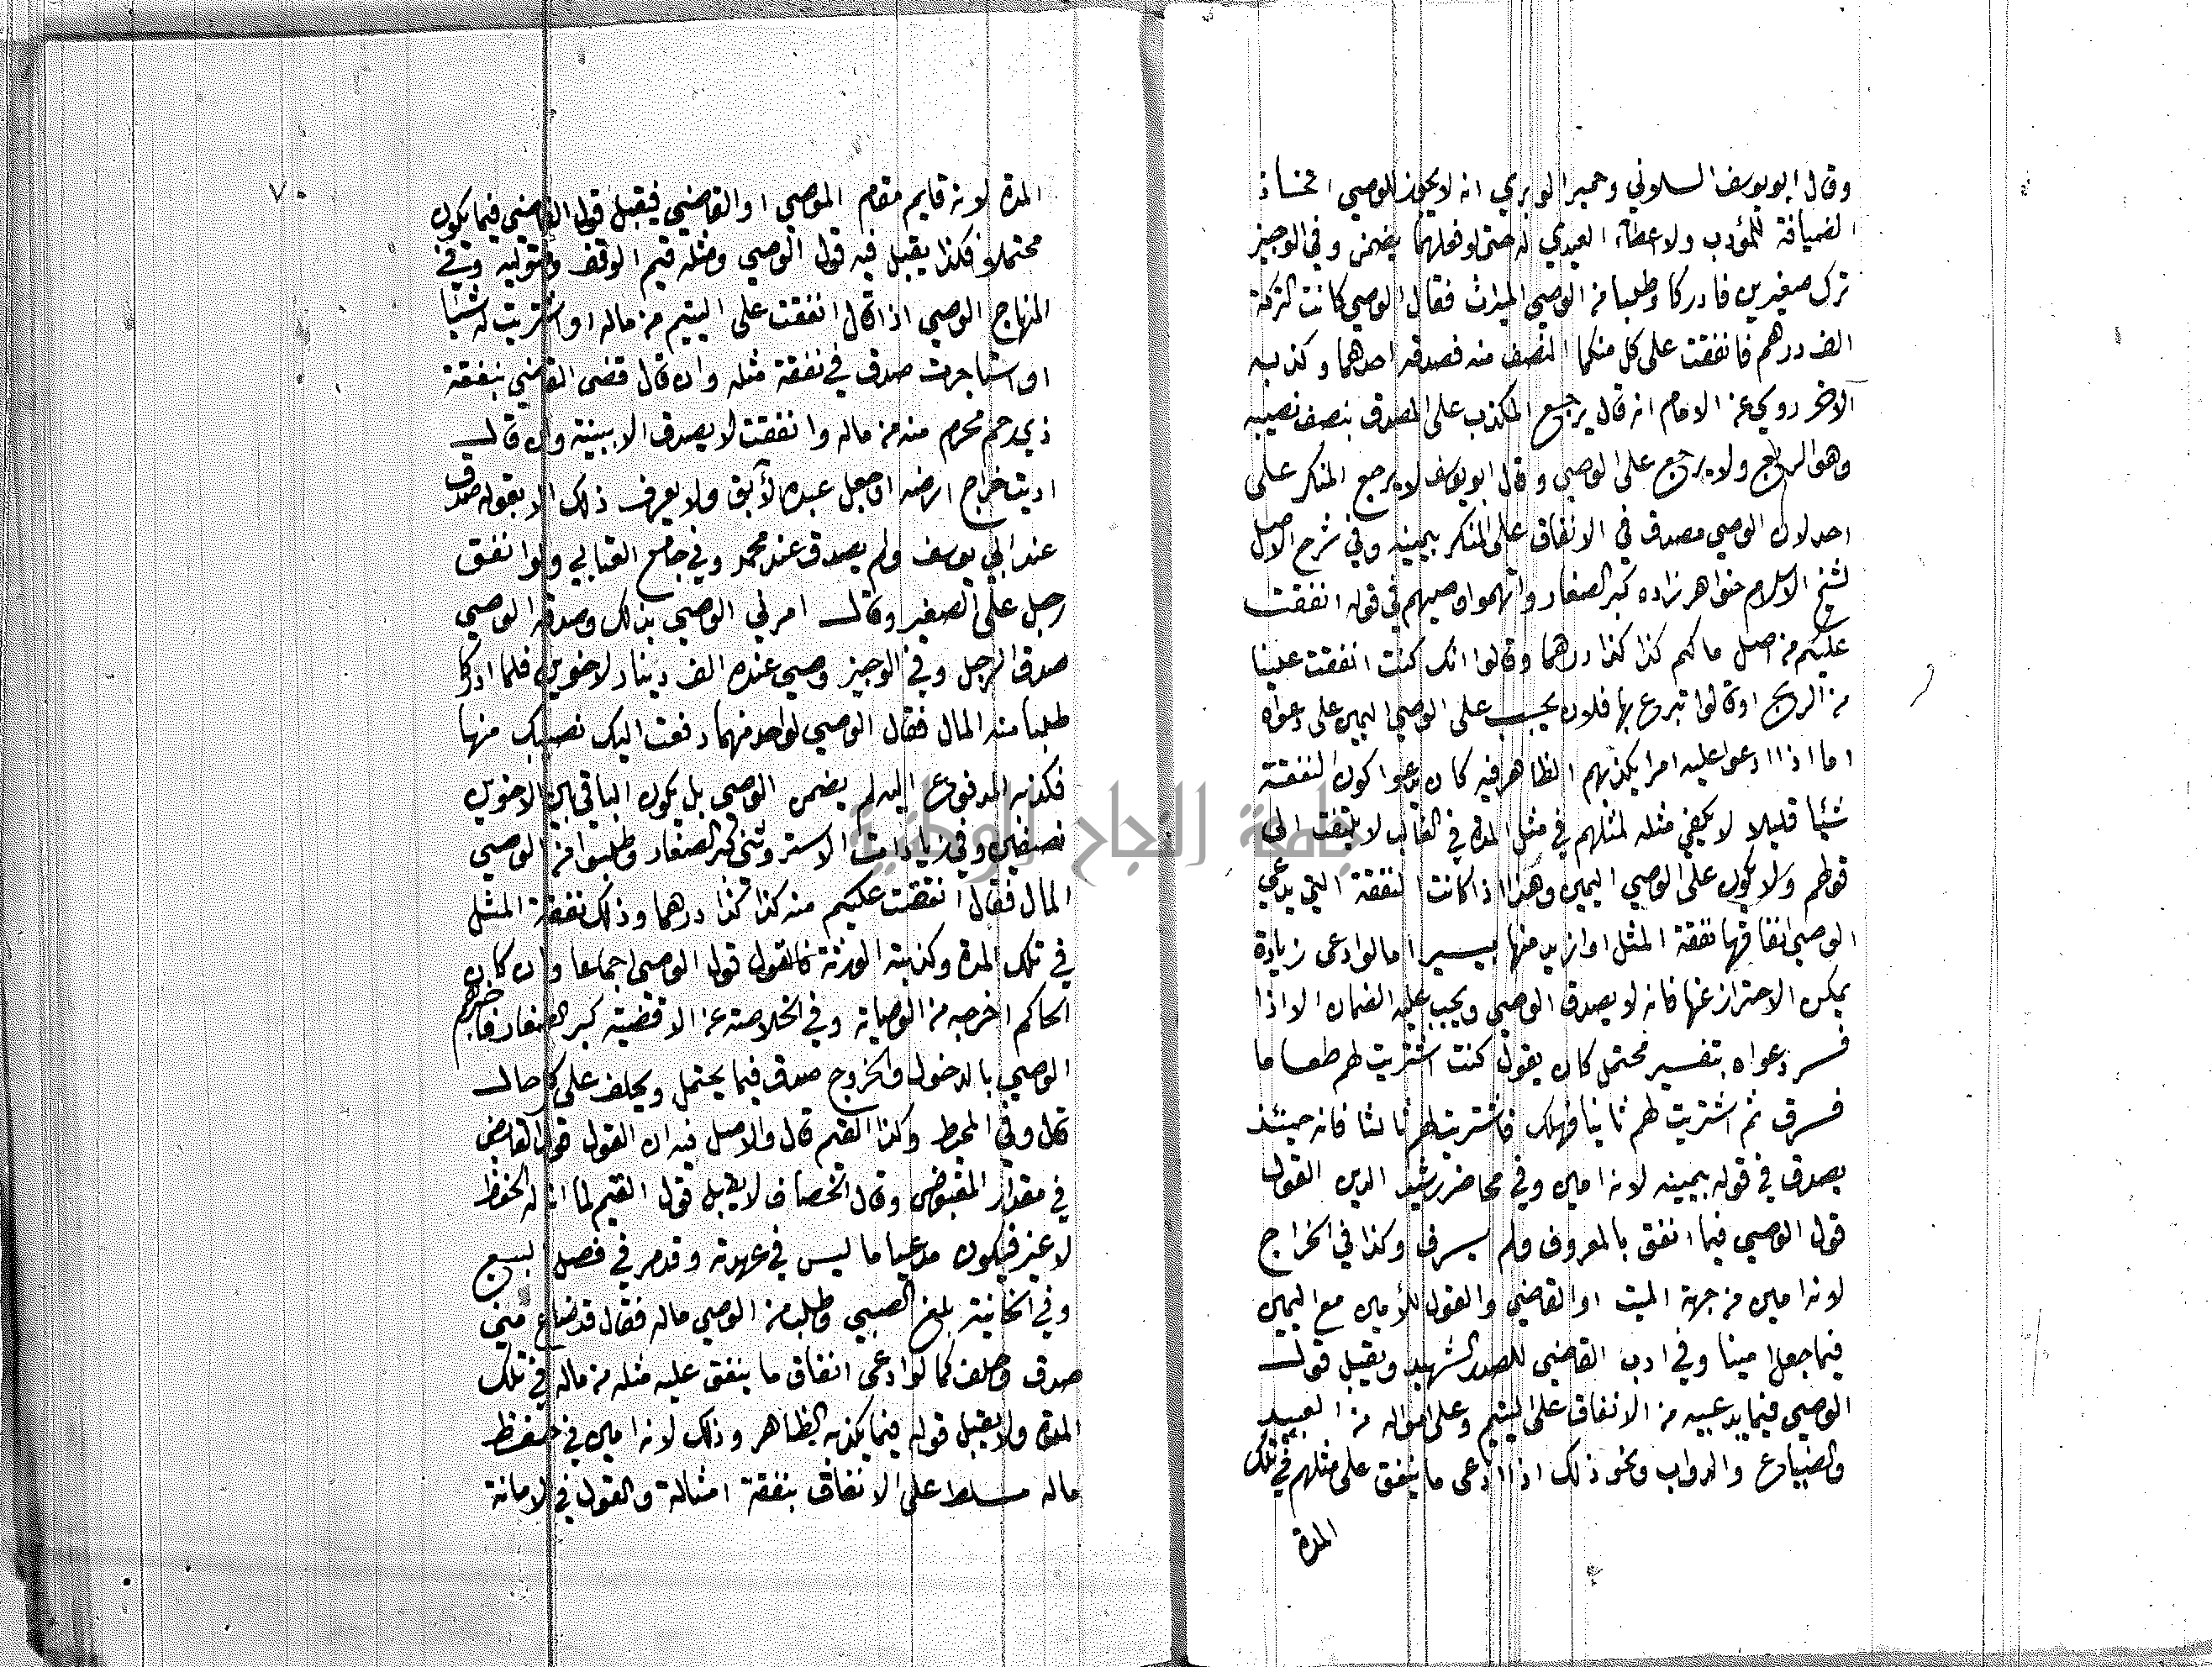 وقال ابو يوسف السلوني وحمير الوبري انه لا يجوز للوصي اتخاذ
الضيافة للمؤدب ولا اعطاء العيدي له حتى لو فعلهما يضمن وفي الوجيز
ترك صغيرين فادركا وطلبا من الوصي الميراث فقال الوصي كانت التركة
الف درهم فانفقت على كل منكما النصف منه فصدقه احدهما وكذبه
الآخر روي عن الامام انه قال يرجع المكذب على المصدق بنصف نصيبه
وهو الربع ولا يرجع على الوصي وقال ابو يوسف لا يرجع المنكر على
احد لان الوصي مصدق في الانفاق على المنكر بيمينه وفي شرح الاصل
لشيخ الاسلام خواهر زاده كبر الصغار واتهموا وصيهم في قوله انفقت
عليكم من اصل مالكم كذا كذا درهما وقالوا انك كنت انفقت علينا
من الربح او قالوا تبرع بها فلان يجب على الوصي اليمين على دعواه
اما اذا ادعوا عليه امرا يكذبهم الظاهر فيه كان يدعوا كون النفقة
شيئا قليلا لا يكفي مثله لمثلهم في مثل المدة في الغالب لا يلتفت الى
قولهم ولا يكون على الوصي اليمين وهذا اذا كانت النفقة التي يدعي
الوصي انفاقها نفقة المثل او ازيد منها يسيرا اما لو ادعى زيادة
يمكن الاحتراز عنها فانه لا يصدق الوصي ويجب عليه الضمان الا اذا
فسر دعواه بتفسير محتمل كان يقول كنت اشتريت لهم طعاما
فسرق ثم اشتريت لهم ثانيا فهلك فاشتريت لهم ثالثا فانه حينئذ
يصدق في قوله بيمينه لانه امين وفي محاضر رشيد الدين القول
قول الوصي فيما انفق بالمعروف ولم يسرف وكذا في الخراج
لانه امين من جهة الميت او القاضي والقول للأمين مع اليمين
فيما جعل امينا وفي ادب القاضي للصدر الشهيد ويقبل قول
الوصي فيما يدعيه من الانفاق على اليتيم وعلى امواله من العبيد
والضياع والدواب ونحو ذلك اذا ادعى ما ينفق على مثلهم في تلك
المدة
٧٠
المدة لانه قايم مقام الموصي او القاضي فيقبل قول القاضي فيما يكون
محتملا فكذا يقبل فيه قول الوصي ومثله قيم الوقف ومتوليه وفي
المنهاج الوصي اذا قال انفقت على اليتيم من ماله او اشتريت له شيئا
او استاجرت صدق في نفقة مثله وان قال قضى القاضي بنفقة
ذي رحم محرم منه من ماله وانفقت لا يصدق الا ببينة وان قال
اديت خراج ارضه او جعل عبده الآبق ولا يعرف ذلك الا بقوله صدق
عند ابي يوسف ولم يصدق عند محمد وفي جامع العتابي ولو انفق
رجل على الصغير وقال امرني الوصي بذلك وصدقه الوصي
صدق الرجل وفي الوجيز وصي عنده الف دينار لاخوين فلما ادركا
طلبا منه المال فقال الوصي لواحد منهما دفعت اليك نصيبك منها
فكذبه المدفوع اليه لم يضمن الوصي بل يكون الباقي بين الاخوين
نصفين وفي زيادات الاستروشني كبر الصغار وطلبوا من الوصي
المال فقال انفقت عليكم منه كذا كذا درهما وذلك نفقة المثل
في تلك المدة وكذبته الورثة فالقول قول الوصي اجماعا وان كان
الحاكم اخرجه من الوصاية وفي الخلاصة عن الاقضية كبر الصغار فاخبرهم
الوصي بالدخول والخروج صدق فيما يحتمل ويحلف على كل حال
قال وفي المحيط وكذا القيم قال والاصل فيه ان القول قول القابض
في مقدار المقبوض وقال الخصاف لا يقبل قول القيم لما ان له الحفظ
لا غير فيكون مدعيا ما ليس في عهدته وقد مر في فصل البيع
وفي الخانية بلغ الصبي وطلب من الوصي ماله فقال قد ضاع مني
صدق وحلف كما لو ادعى انفاق ما ينفق عليه مثله من ماله في تلك
المدة ولا يقبل قوله فيما يكذبه الظاهر وذلك لانه امين في حفظ
ماله مسلط على الانفاق بنفقة امثاله والقول في الامانة
جامعة النجاح الوطنية